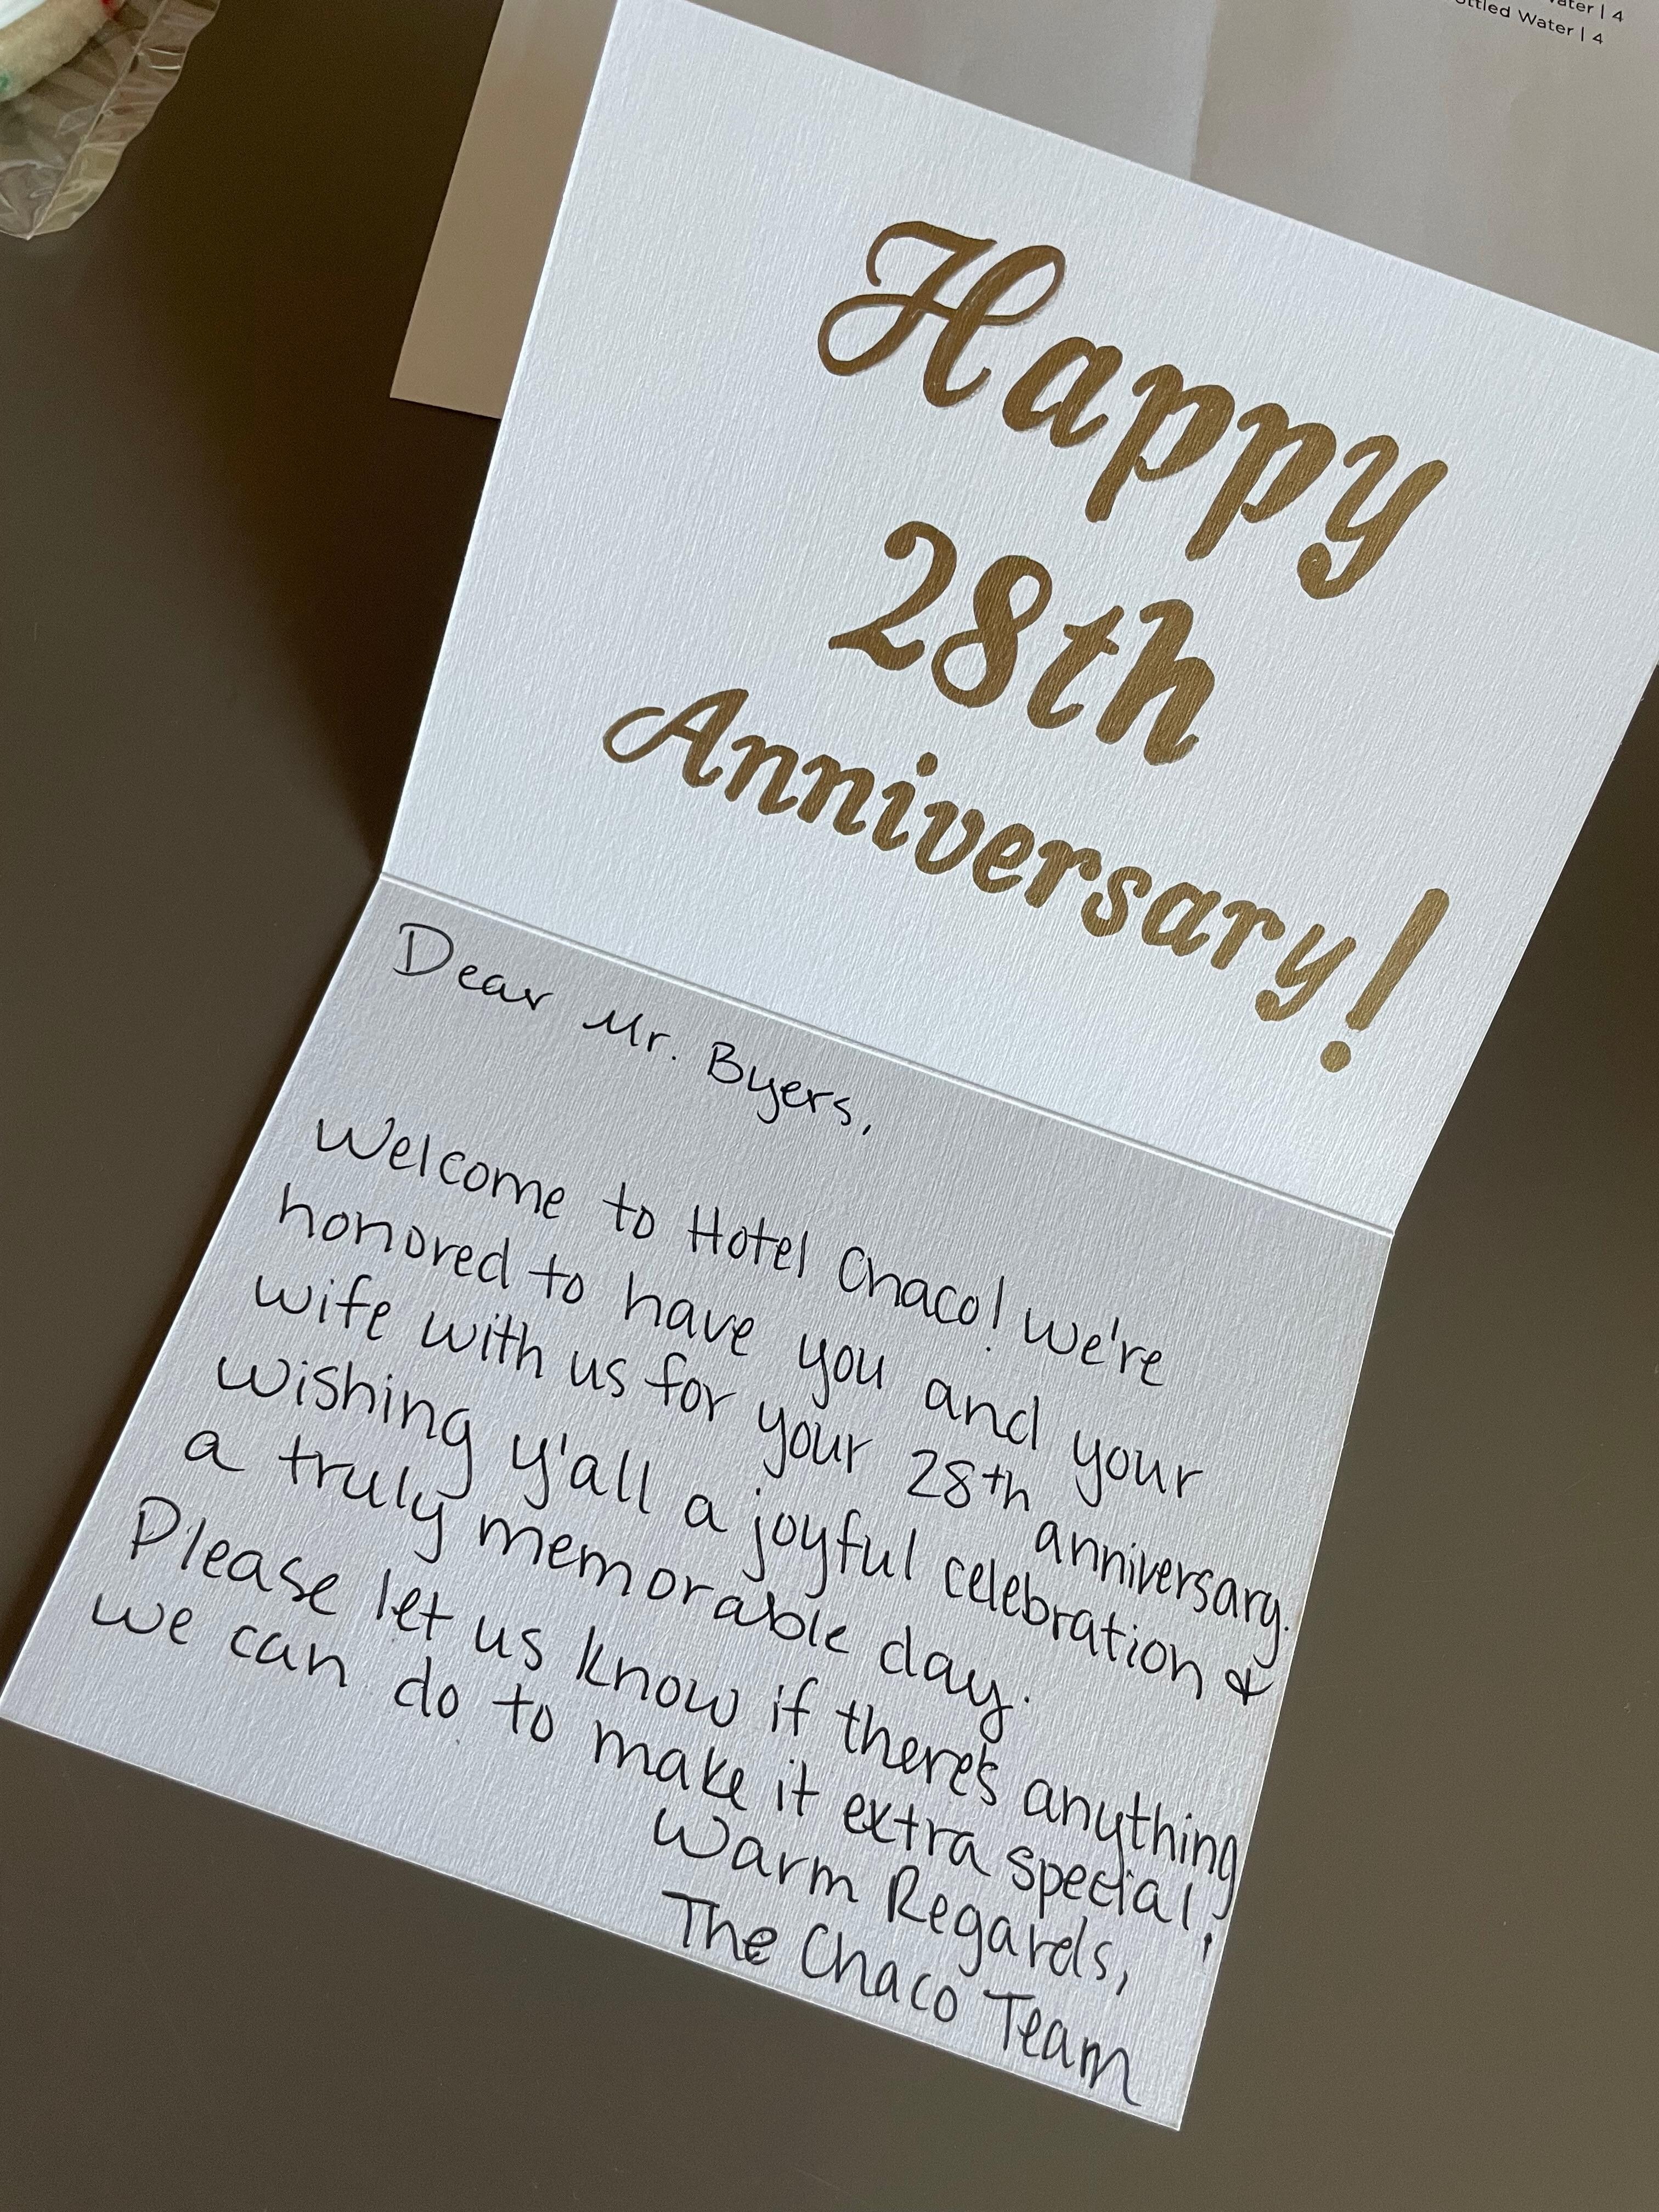 ater | 4
ttled Water | 4
Happy
28th
Anniversary!
Dear Mr. Byers,
Welcome to Hotel Chaco! We're
honored to have you and your
wife with us for your 28th anniversary.
Wishing y'all a joyful celebration &
a truly memorable day.
Please let us know if there's anything
we can do to make it extra special!
Warm Regards,
The Chaco Team